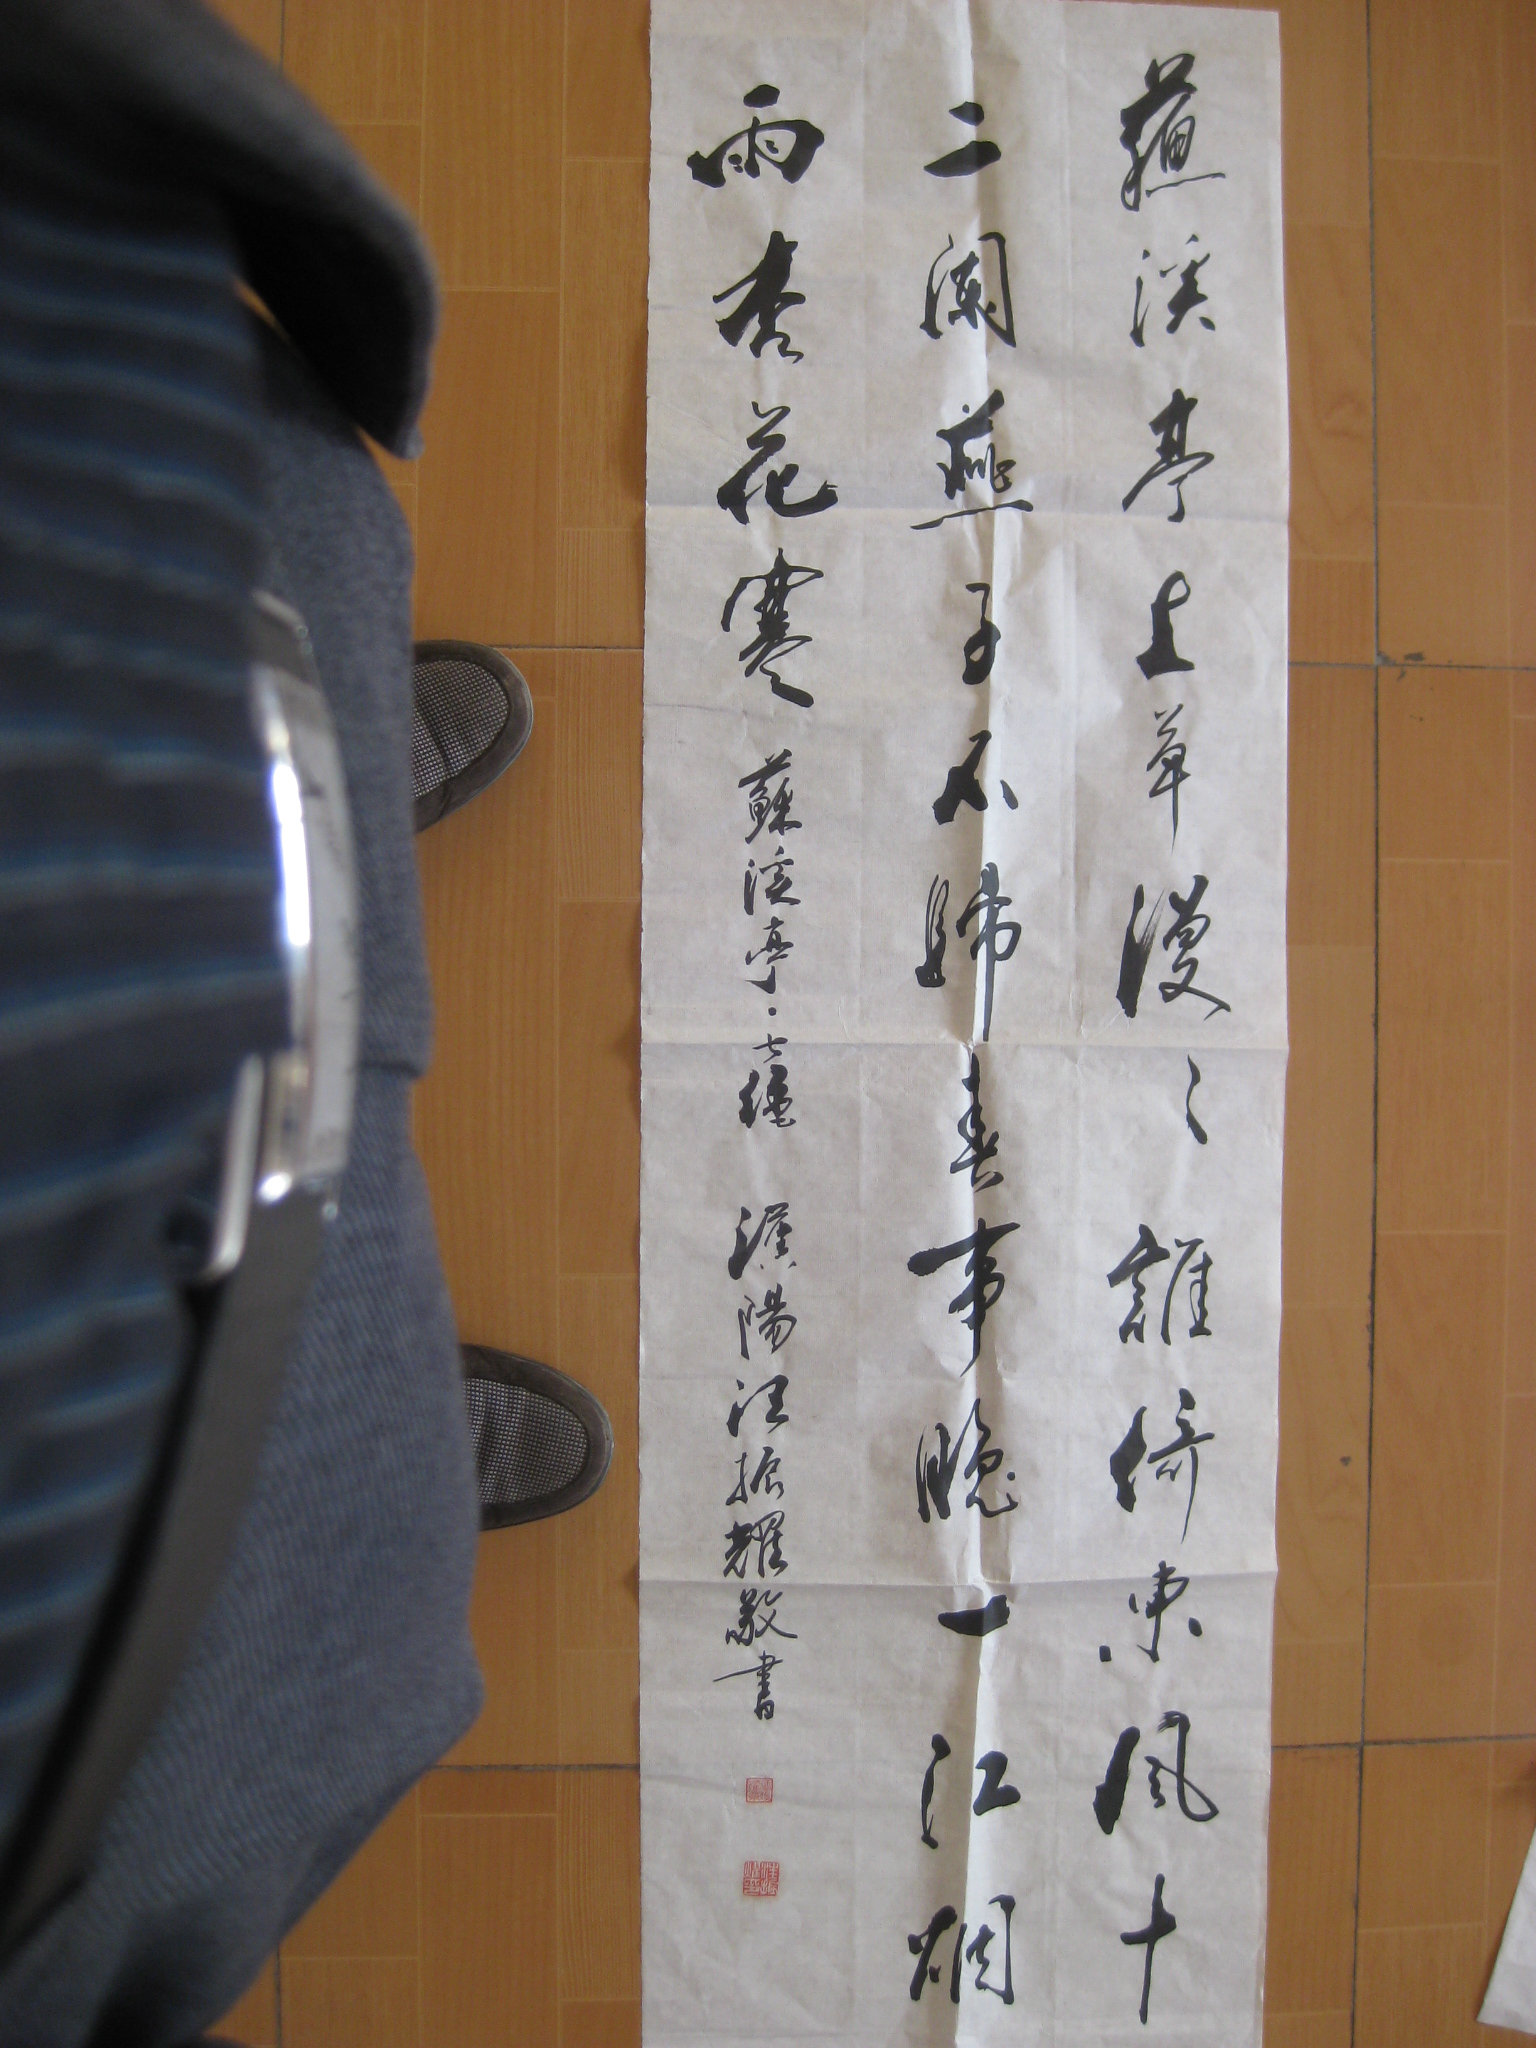 蘇溪亭上草漫〻誰倚東風十
二闌燕子不歸春事晚一江烟
雨杏花寒 蘇溪亭·七絕 漢陽汪振耀敬書